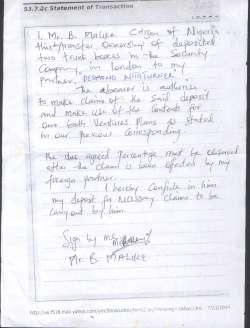 53.7.2c Statement of Transaction
I, Mr. B. Malike Citizen of Nigeria
transfer Ownership of deposited
two trunk boxes in the Security
Company, in London to my
Partner, DESMOND
The above is authorise
to make claims of the said deposit
and make use of the contents for
our both Ventures Plans as stated
in our previous corresponding.
The due agreed percentage must be
after the claim is been effected by my
foreign partner.
I hereby confide in him
my deposit for necessary claims to be
carry out by him.
Sign by me
Mr. B. MALIKE